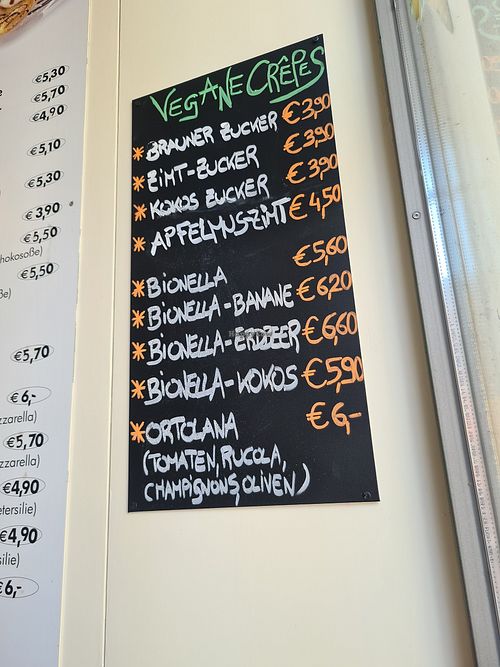 VEGANE CRÊPES
* BRAUNER ZUCKER €3,90
* ZIMT-ZUCKER €3,90
* KOKOS ZUCKER €3,90
* APFELMUS-ZIMT €4,50
* BIONELLA €5,60
* BIONELLA-BANANE €6,20
* BIONELLA-ERDBEER €6,60
* BIONELLA-KOKOS €5,90
* ORTOLANA €6,-
(TOMATEN, RUCOLA,
CHAMPIGNONS, OLIVEN)
€5,30
€5,70
€4,90
€5,10
€5,30
€3,90
€5,50
hokosoße)
€5,50
ße)
€5,70
€6,-
zzarella)
€5,70
zzarella)
€4,90
etersilie)
€4,90
silie)
€6,-